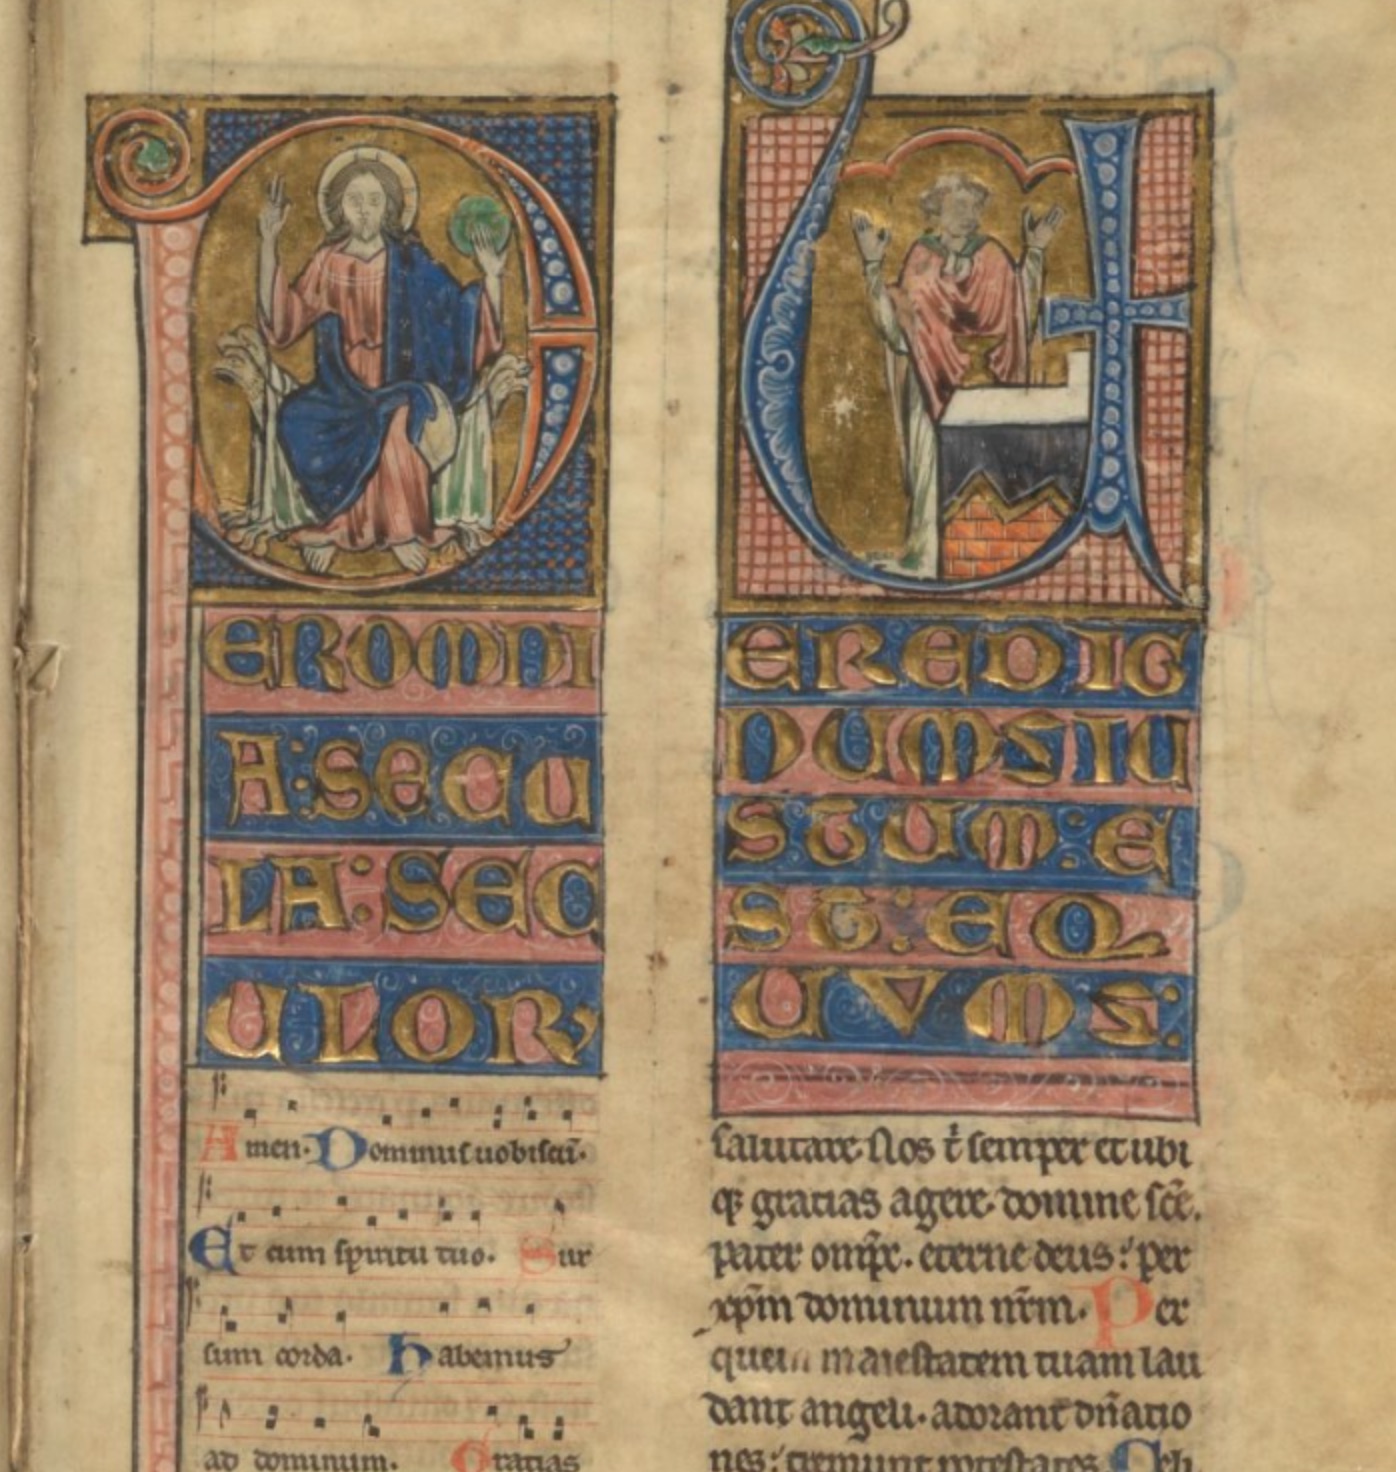 P
EROMNI
A:SECU
LA:SEC
ULOR
Amen. Dominus uobiscū.
Et cum spiritu tuo. Sur
sum corda. Habemus
ad dominum. Gratias
U
EREDIG
NUMSIU
STUM:E
ST:EQ
UVMS:
salutare. Nos t̄ semper et ubi
qꝫ gratias agere. domine sc̄e.
pater omp̄s. eterne deus: per
xp̄m dominum nr̄m. Per
quem maiestatem tuam lau
dant angeli. adorant dn̄atio
nes: tremunt potestates. Celi